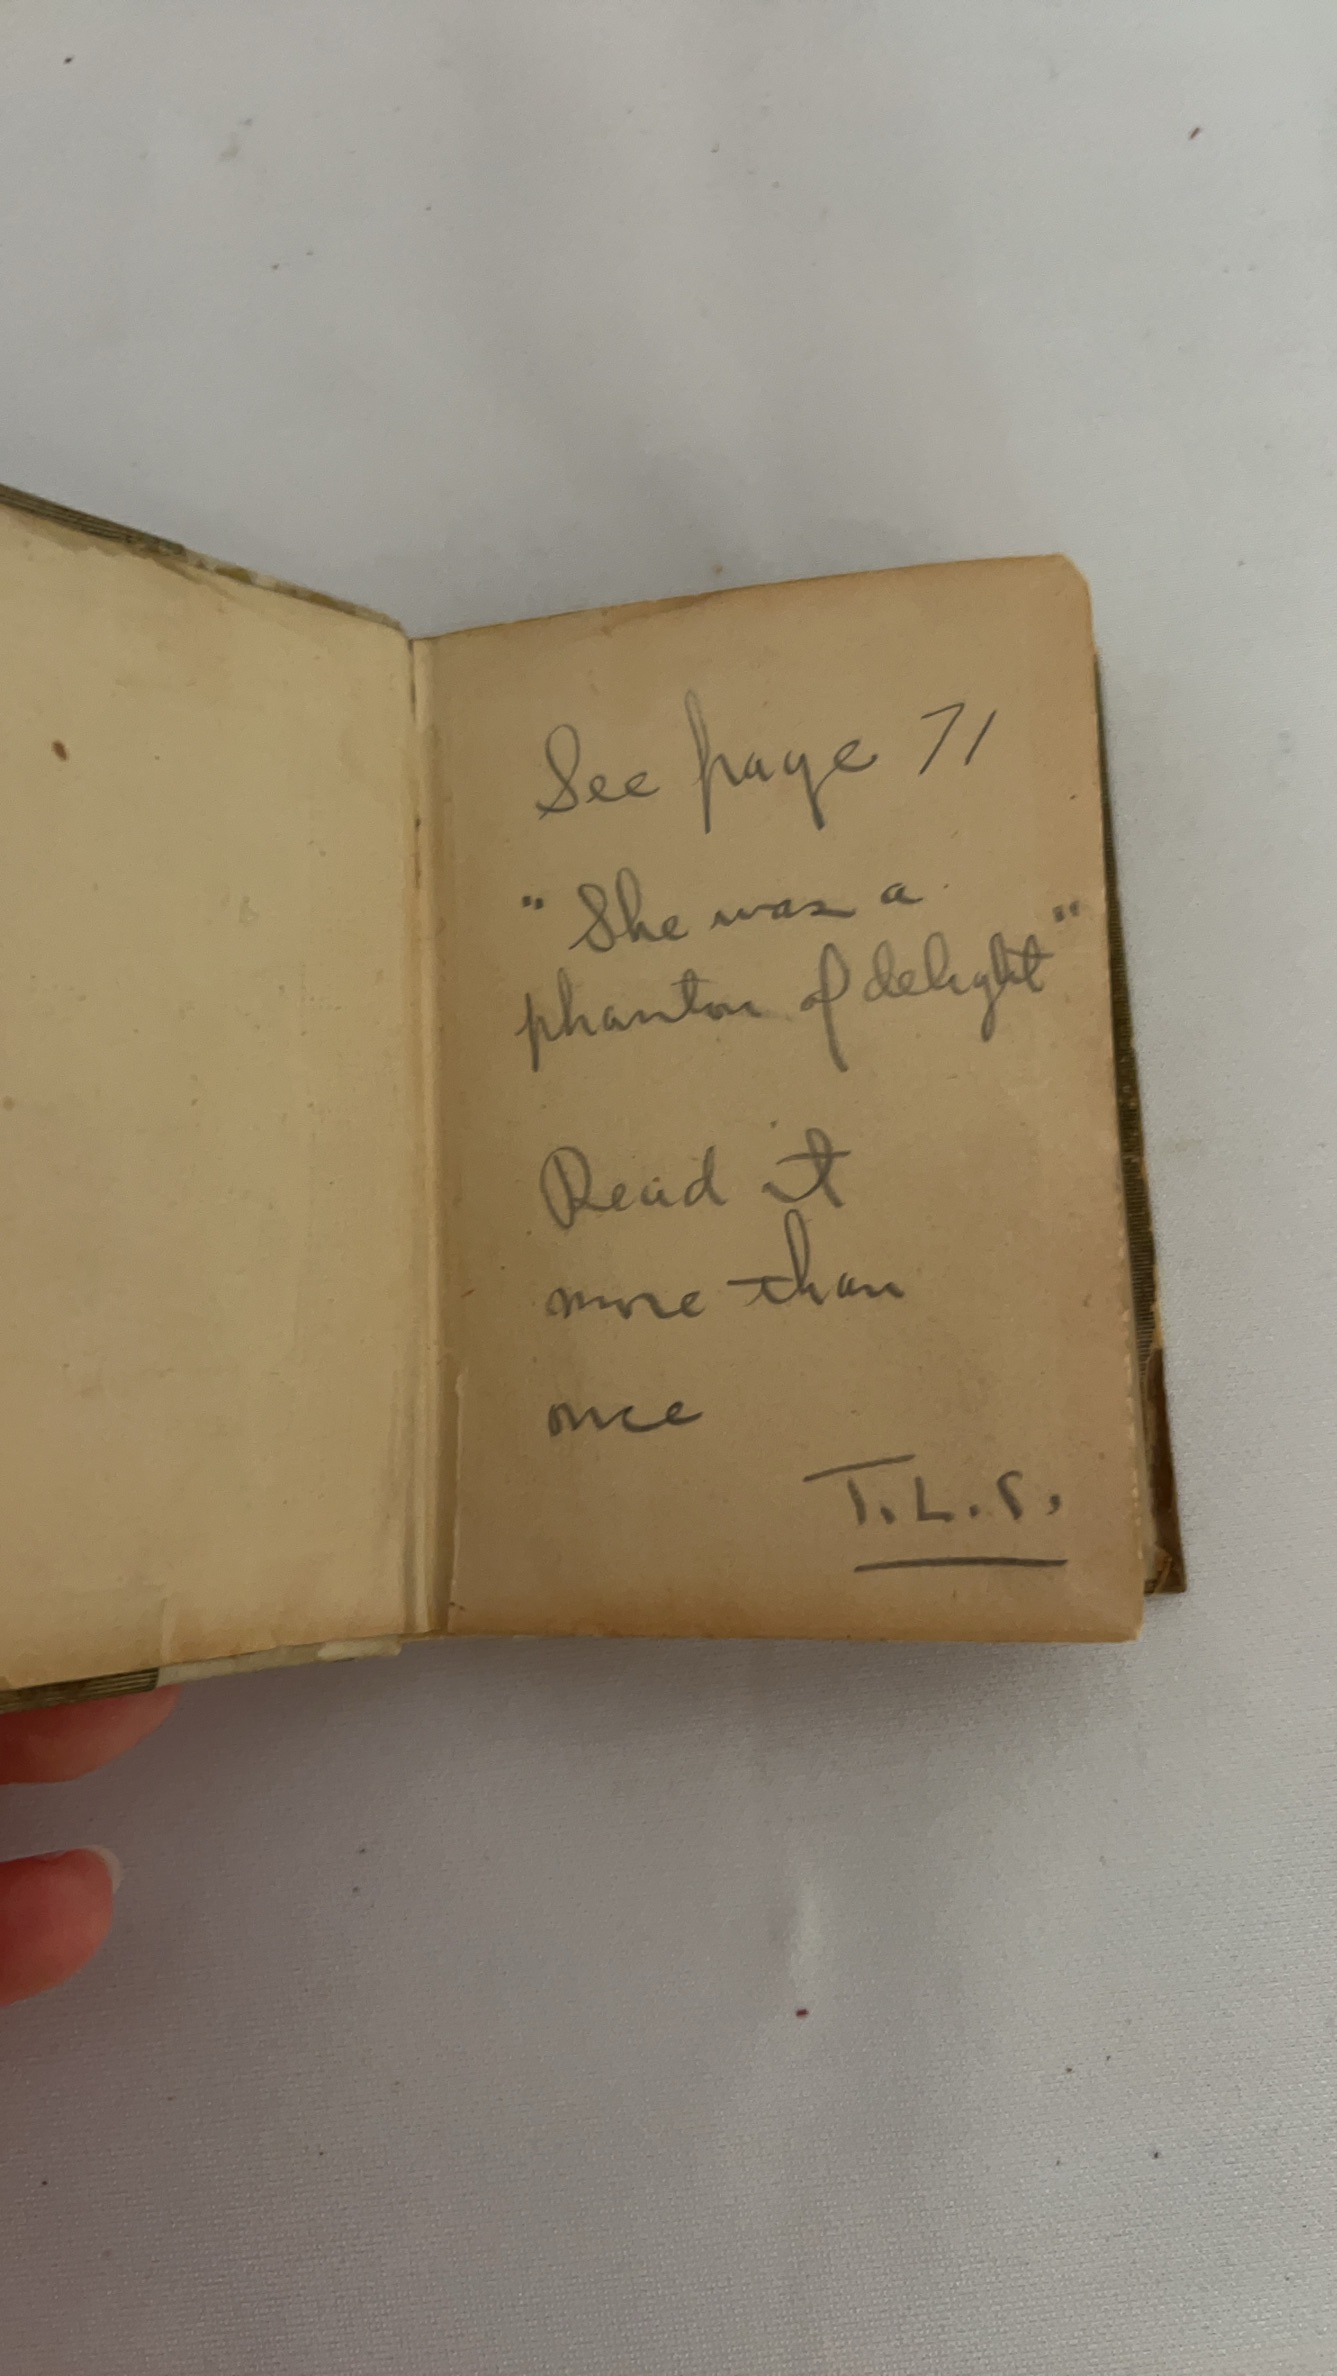 See page 71
"She was a
phantom of delight"
Read it
more than
once
T.L.S.